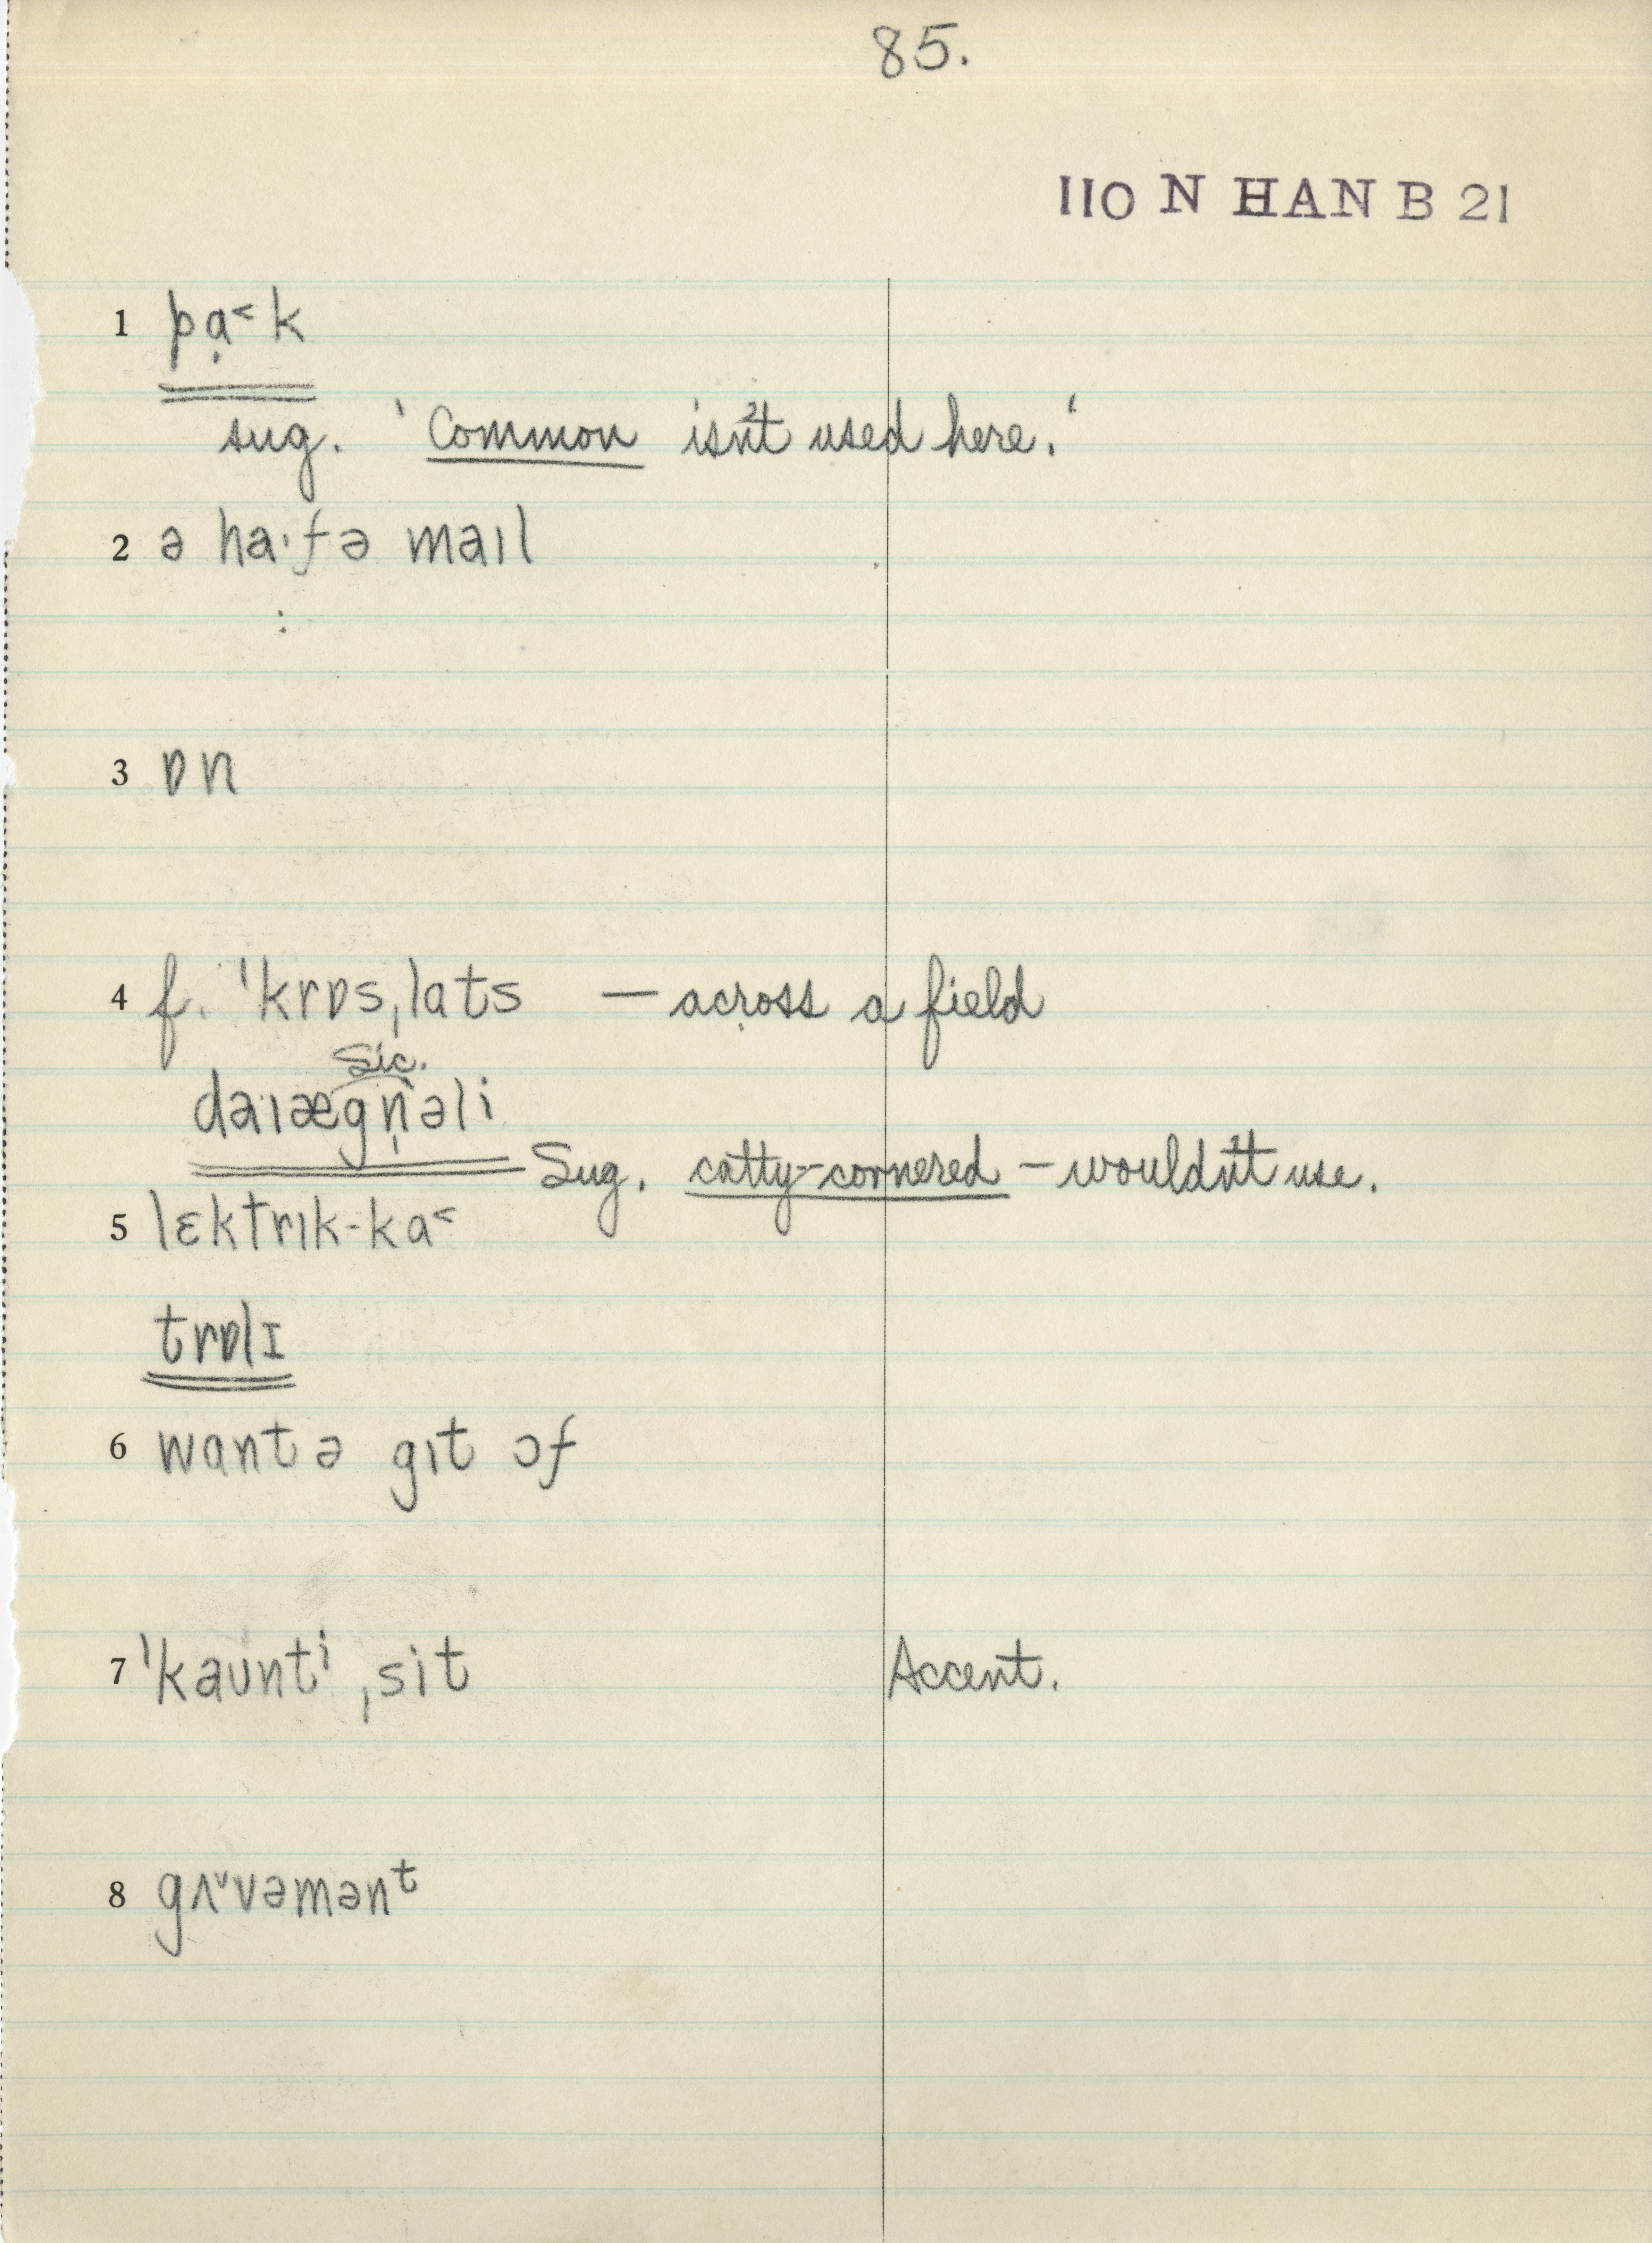 85.
110 N HAN B 21
1 pạ˂k
sug. 'Common isn't used here.'
2 ə ha·fə maıl
3 ɒn
4 f. 'krɒsˌlats — across a field
Sic.
daıægṇəli
Sug. catty-cornered — wouldn't use.
5 lɛktrık-ka˂
trɒlɪ
6 wantə gıt ɔf
7 'kaʊntⁱ ˌsit Accent.
8 gʌᵛvəmənᵗ